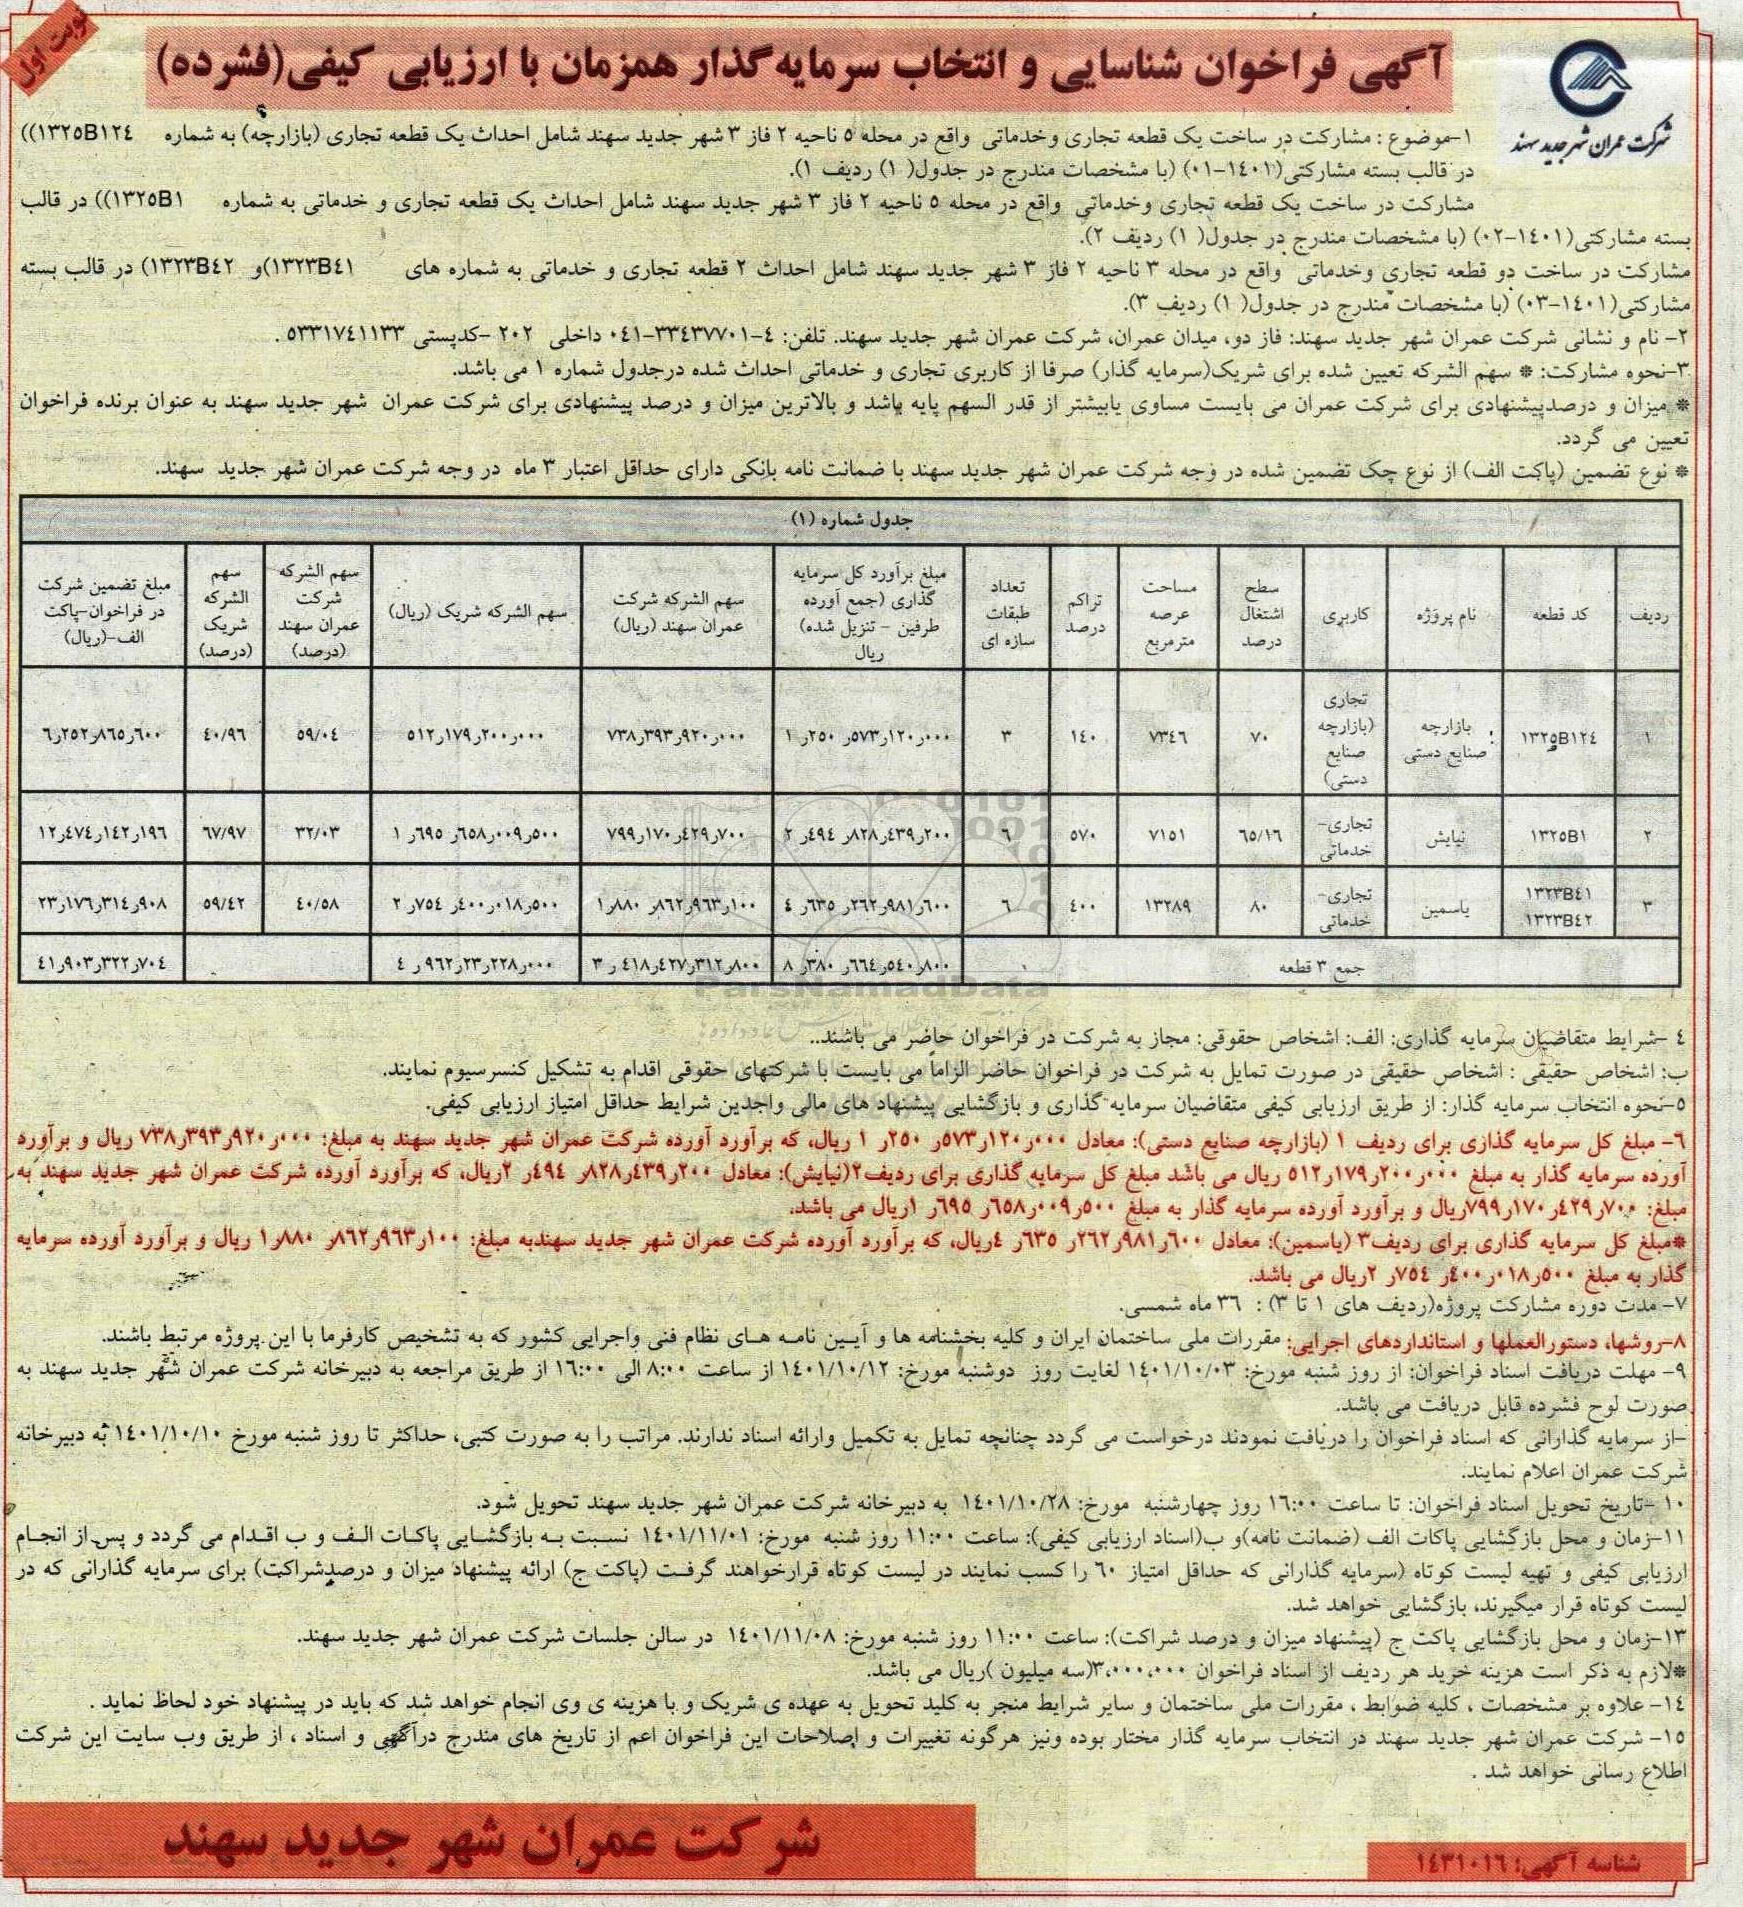 نوبت اول
آگهی فراخوان شناسایی و انتخاب سرمایه‌گذار همزمان با ارزیابی کیفی(فشرده)
شرکت عمران شهر جدید سهند
۱-موضوع : مشارکت در ساخت یک قطعه تجاری وخدماتی واقع در محله ۵ ناحیه ۲ فاز ۳ شهر جدید سهند شامل احداث یک قطعه تجاری (بازارچه) به شماره ۱۳۲۵B۱۲۴))
در قالب بسته مشارکتی(۱۴۰۱-۰۱) (با مشخصات مندرج در جدول( ۱) ردیف ۱).
مشارکت در ساخت یک قطعه تجاری وخدماتی واقع در محله ۵ ناحیه ۲ فاز ۳ شهر جدید سهند شامل احداث یک قطعه تجاری و خدماتی به شماره ۱۳۲۵B۱)) در قالب
بسته مشارکتی(۱۴۰۱-۰۲) (با مشخصات مندرج در جدول( ۱) ردیف ۲).
مشارکت در ساخت دو قطعه تجاری وخدماتی واقع در محله ۳ ناحیه ۲ فاز ۳ شهر جدید سهند شامل احداث ۲ قطعه تجاری و خدماتی به شماره های ۱۳۲۳B۴۱)و ۱۳۲۳B۴۲) در قالب بسته
مشارکتی(۱۴۰۱-۰۳) (با مشخصات مندرج در جدول( ۱) ردیف ۳).
۲- نام و نشانی شرکت عمران شهر جدید سهند: فاز دو، میدان عمران، شرکت عمران شهر جدید سهند. تلفن: ۴-۳۳۴۳۷۷۰۱-۰۴۱ داخلی ۲۰۲ -کدپستی ۵۳۳۱۷۴۱۱۳۳ .
۳-نحوه مشارکت: * سهم الشرکه تعیین شده برای شریک(سرمایه گذار) صرفا از کاربری تجاری و خدماتی احداث شده درجدول شماره ۱ می باشد.
* میزان و درصدپیشنهادی برای شرکت عمران می بایست مساوی یابیشتر از قدر السهم پایه باشد و بالاترین میزان و درصد پیشنهادی برای شرکت عمران شهر جدید سهند به عنوان برنده فراخوان
تعیین می گردد.
* نوع تضمین (پاکت الف) از نوع چک تضمین شده در وجه شرکت عمران شهر جدید سهند با ضمانت نامه بانکی دارای حداقل اعتبار ۳ ماه در وجه شرکت عمران شهر جدید سهند.
جدول شماره (۱)
ردیف | کد قطعه | نام پروژه | کاربری | سطح اشتغال درصد | مساحت عرصه مترمربع | تراکم درصد | تعداد طبقات سازه ای | مبلغ برآورد کل سرمایه گذاری (جمع آورده طرفین - تنزیل شده) ریال | سهم الشرکه شرکت عمران سهند (ریال) | سهم الشرکه شریک (ریال) | سهم الشرکه شرکت عمران سهند (درصد) | سهم الشرکه شریک (درصد) | مبلغ تضمین شرکت در فراخوان-پاکت الف-(ریال)
۱ | ۱۳۲۵B۱۲۴ | بازارچه صنایع دستی | تجاری (بازارچه صنایع دستی) | ۷۰ | ۷۳۴۶ | ۱۴۰ | ۳ | ۱ر۲۵۰ر۵۷۳ر۱۲۰ر۰۰۰ | ۷۳۸ر۳۹۳ر۹۲۰ر۰۰۰ | ۵۱۲ر۱۷۹ر۲۰۰ر۰۰۰ | ۵۹/۰۴ | ۴۰/۹۶ | ۶ر۲۵۲ر۸۶۵ر۶۰۰
۲ | ۱۳۲۵B۱ | نیایش | تجاری-خدماتی | ۶۵/۱۶ | ۷۱۵۱ | ۵۷۰ | ۶ | ۲ر۴۹۴ر۸۲۸ر۴۳۹ر۲۰۰ | ۷۹۹ر۱۷۰ر۴۲۹ر۷۰۰ | ۱ر۶۹۵ر۶۵۸ر۰۰۹ر۵۰۰ | ۳۲/۰۳ | ۶۷/۹۷ | ۱۲ر۴۷۴ر۱۴۲ر۱۹۶
۳ | ۱۳۲۳B۴۱ ۱۳۲۳B۴۲ | یاسمین | تجاری-خدماتی | ۸۰ | ۱۳۲۸۹ | ۴۰۰ | ۶ | ۴ر۶۳۵ر۲۶۲ر۹۸۱ر۶۰۰ | ۱ر۸۸۰ر۸۶۲ر۹۶۳ر۱۰۰ | ۲ر۷۵۴ر۴۰۰ر۰۱۸ر۵۰۰ | ۴۰/۵۸ | ۵۹/۴۲ | ۲۳ر۱۷۶ر۳۱۴ر۹۰۸
جمع ۳ قطعه | ۸ر۳۸۰ر۶۶۴ر۵۴۰ر۸۰۰ | ۳ر۴۱۸ر۴۲۷ر۳۱۲ر۸۰۰ | ۴ر۹۶۲ر۲۳ر۲۲۸ر۰۰۰ | ۴۱ر۹۰۳ر۳۲۲ر۷۰۴
ParsNamadData
۴ -شرایط متقاضیان سرمایه گذاری: الف: اشخاص حقوقی: مجاز به شرکت در فراخوان حاضر می باشند..
ب: اشخاص حقیقی : اشخاص حقیقی در صورت تمایل به شرکت در فراخوان حاضر الزاماً می بایست با شرکتهای حقوقی اقدام به تشکیل کنسرسیوم نمایند.
۵-نحوه انتخاب سرمایه گذار: از طریق ارزیابی کیفی متقاضیان سرمایه گذاری و بازگشایی پیشنهاد های مالی واجدین شرایط حداقل امتیاز ارزیابی کیفی.
۶- مبلغ کل سرمایه گذاری برای ردیف ۱ (بازارچه صنایع دستی): معادل ۱ر۲۵۰ر۵۷۳ر۱۲۰ر۰۰۰ ریال، که برآورد آورده شرکت عمران شهر جدید سهند به مبلغ: ۷۳۸ر۳۹۳ر۹۲۰ر۰۰۰ ریال و برآورد
آورده سرمایه گذار به مبلغ ۵۱۲ر۱۷۹ر۲۰۰ر۰۰۰ ریال می باشد مبلغ کل سرمایه گذاری برای ردیف۲(نیایش): معادل ۲ر۴۹۴ر۸۲۸ر۴۳۹ر۲۰۰ریال، که برآورد آورده شرکت عمران شهر جدید سهند به
مبلغ: ۷۹۹ر۱۷۰ر۴۲۹ر۷۰۰ریال و برآورد آورده سرمایه گذار به مبلغ ۱ر۶۹۵ر۶۵۸ر۰۰۹ر۵۰۰ریال می باشد.
*مبلغ کل سرمایه گذاری برای ردیف۳ (یاسمین): معادل ۴ر۶۳۵ر۲۶۲ر۹۸۱ر۶۰۰ریال، که برآورد آورده شرکت عمران شهر جدید سهندبه مبلغ: ۱ر۸۸۰ر۸۶۲ر۹۶۳ر۱۰۰ ریال و برآورد آورده سرمایه
گذار به مبلغ ۲ر۷۵۴ر۴۰۰ر۰۱۸ر۵۰۰ریال می باشد.
۷- مدت دوره مشارکت پروژه(ردیف های ۱ تا ۳) : ۳۶ ماه شمسی.
۸-روشها، دستورالعملها و استانداردهای اجرایی: مقررات ملی ساختمان ایران و کلیه بخشنامه ها و آیین نامه های نظام فنی واجرایی کشور که به تشخیص کارفرما با این پروژه مرتبط باشند.
۹- مهلت دریافت اسناد فراخوان: از روز شنبه مورخ: ۱۴۰۱/۱۰/۰۳ لغایت روز دوشنبه مورخ: ۱۴۰۱/۱۰/۱۲ از ساعت ۸:۰۰ الی ۱۶:۰۰ از طریق مراجعه به دبیرخانه شرکت عمران شهر جدید سهند به
صورت لوح فشرده قابل دریافت می باشد.
-از سرمایه گذارانی که اسناد فراخوان را دریافت نمودند درخواست می گردد چنانچه تمایل به تکمیل وارائه اسناد ندارند. مراتب را به صورت کتبی، حداکثر تا روز شنبه مورخ ۱۴۰۱/۱۰/۱۰ به دبیرخانه
شرکت عمران اعلام نمایند.
۱۰ -تاریخ تحویل اسناد فراخوان: تا ساعت ۱۶:۰۰ روز چهارشنبه مورخ: ۱۴۰۱/۱۰/۲۸ به دبیرخانه شرکت عمران شهر جدید سهند تحویل شود.
۱۱-زمان و محل بازگشایی پاکات الف (ضمانت نامه)و ب(اسناد ارزیابی کیفی): ساعت ۱۱:۰۰ روز شنبه مورخ: ۱۴۰۱/۱۱/۰۱ نسبت به بازگشایی پاکات الف و ب اقدام می گردد و پس از انجام
ارزیابی کیفی و تهیه لیست کوتاه (سرمایه گذارانی که حداقل امتیاز ۶۰ را کسب نمایند در لیست کوتاه قرارخواهند گرفت (پاکت ج) ارائه پیشنهاد میزان و درصدشراکت) برای سرمایه گذارانی که در
لیست کوتاه قرار میگیرند، بازگشایی خواهد شد.
۱۳-زمان و محل بازگشایی پاکت ج (پیشنهاد میزان و درصد شراکت): ساعت ۱۱:۰۰ روز شنبه مورخ: ۱۴۰۱/۱۱/۰۸ در سالن جلسات شرکت عمران شهر جدید سهند.
*لازم به ذکر است هزینه خرید هر ردیف از اسناد فراخوان ۳،۰۰۰،۰۰۰(سه میلیون )ریال می باشد.
۱۴- علاوه بر مشخصات ، کلیه ضوابط ، مقررات ملی ساختمان و سایر شرایط منجر به کلید تحویل به عهده ی شریک و با هزینه ی وی انجام خواهد شد که باید در پیشنهاد خود لحاظ نماید .
۱۵- شرکت عمران شهر جدید سهند در انتخاب سرمایه گذار مختار بوده ونیز هرگونه تغییرات و اصلاحات این فراخوان اعم از تاریخ های مندرج درآگهی و اسناد ، از طریق وب سایت این شرکت
اطلاع رسانی خواهد شد .
شرکت عمران شهر جدید سهند
شناسه آگهی: ۱۴۳۱۰۱۶